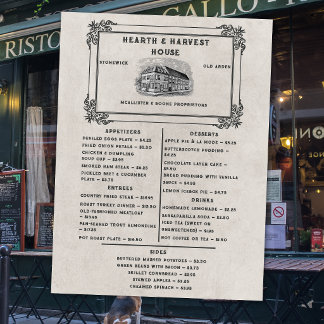 RISTO
GALLO - RIS
HEARTH & HARVEST
HOUSE
STONEWICK
OLD ARDEN
MCALLISTER & BOONE PROPRIETORS
APPETIZERS
DEVILED EGGS PLATE – $4.25
FRIED ONION PETALS – $3.75
CHICKEN & DUMPLING
SOUP CUP – $3.95
SMOKED HAM STEAK –
PICKLED BEET & CUCUMBER
PLATE –
ENTREES
COUNTRY FRIED STEAK –
ROAST TURKEY DINNER –
OLD-FASHIONED MEATLOAF
PAN-SEARED TROUT ALMONDINE
POT ROAST PLATE –
DESSERTS
APPLE PIE À LA MODE –
BUTTERSCOTCH PUDDING –
CHOCOLATE LAYER CAKE –
BREAD PUDDING WITH VANILLA
SAUCE –
LEMON ICEBOX PIE –
DRINKS
HOMEMADE LEMONADE –
SARSAPARILLA SODA –
ICED TEA (SWEET OR
UNSWEETENED)
HOT COFFEE OR TEA –
SIDES
BUTTERED MASHED POTATOES –
GREEN BEANS WITH BACON –
SKILLET CORNBREAD –
STEWED APPLES –
CREAMED SPINACH –